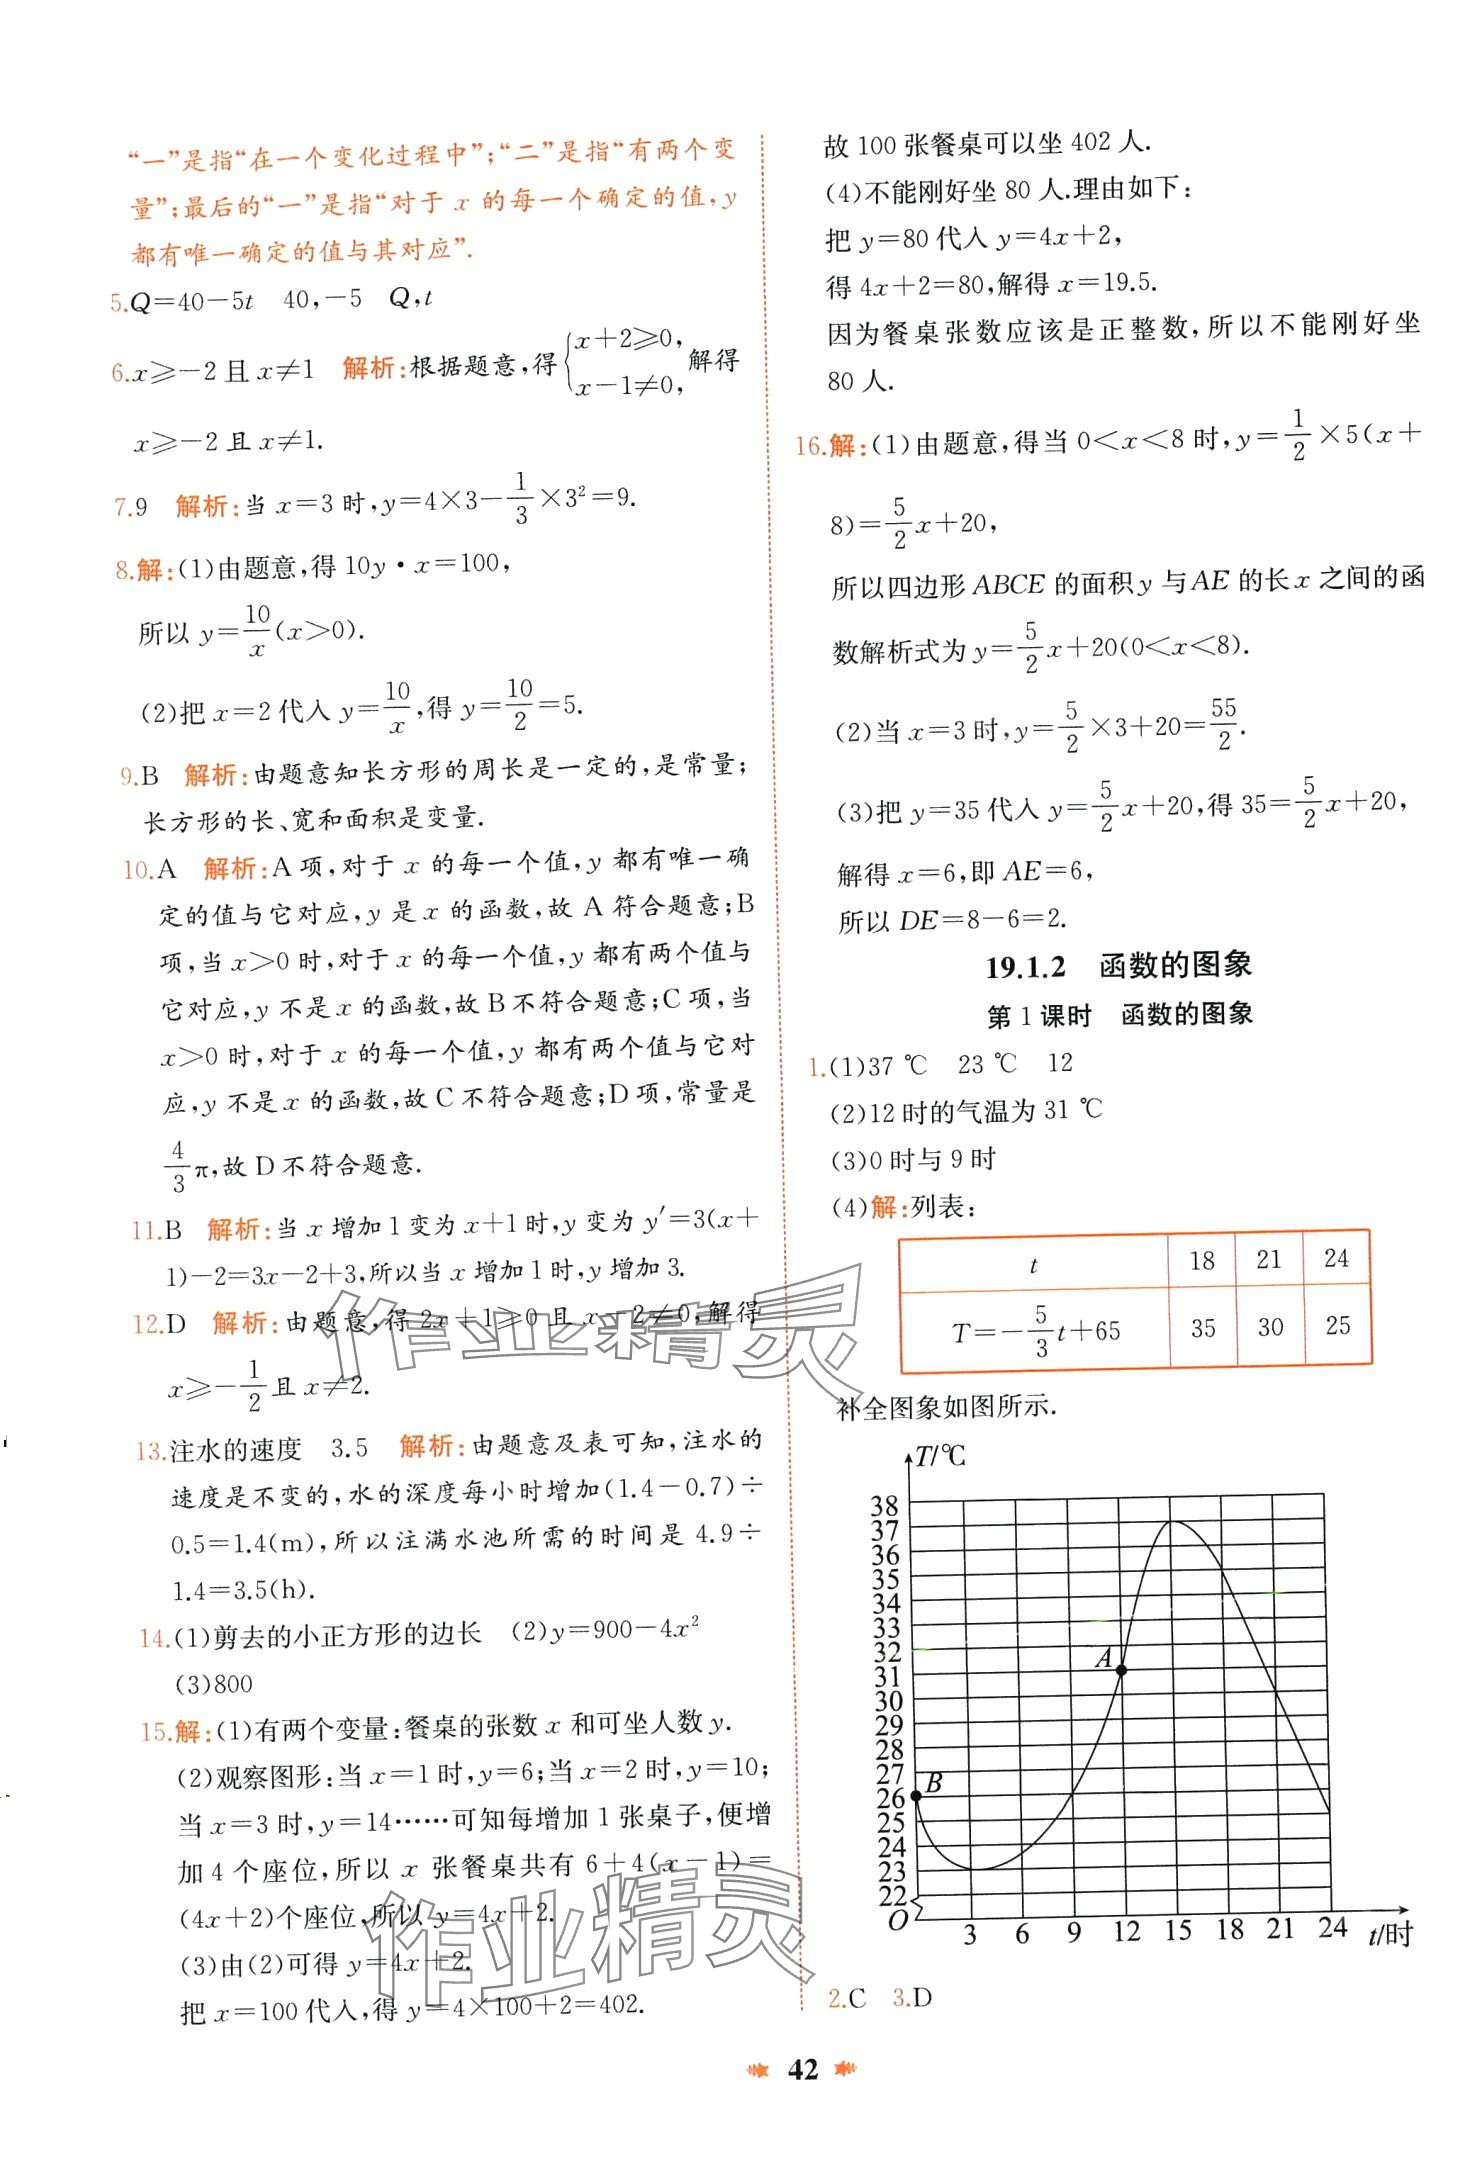 “一”是指“在一个变化过程中”;“二”是指“有两个变
量”;最后的“一”是指“对于 x 的每一个确定的值,y
都有唯一确定的值与其对应”.
5.Q=40-5t  40,-5  Q,t
6.x≥-2 且 x≠1  解析:根据题意,得{x+2≥0, x-1≠0,解得
x≥-2 且 x≠1.
7.9  解析:当 x=3 时,y=4×3-1/3×3²=9.
8.解:(1)由题意,得 10y·x=100,
所以 y=10/x(x>0).
(2)把 x=2 代入 y=10/x,得 y=10/2=5.
9.B  解析:由题意知长方形的周长是一定的,是常量;
长方形的长、宽和面积是变量.
10.A  解析:A 项,对于 x 的每一个值,y 都有唯一确
定的值与它对应,y 是 x 的函数,故 A 符合题意;B
项,当 x>0 时,对于 x 的每一个值,y 都有两个值与
它对应,y 不是 x 的函数,故 B 不符合题意;C 项,当
x>0 时,对于 x 的每一个值,y 都有两个值与它对
应,y 不是 x 的函数,故 C 不符合题意;D 项,常量是
4/3π,故 D 不符合题意.
11.B  解析:当 x 增加 1 变为 x+1 时,y 变为 y′=3(x+
1)-2=3x-2+3,所以当 x 增加 1 时,y 增加 3.
12.D  解析:由题意,得 2x+1≥0 且 x-2≠0,解得
x≥-1/2且 x≠2.
13.注水的速度  3.5  解析:由题意及表可知,注水的
速度是不变的,水的深度每小时增加(1.4-0.7)÷
0.5=1.4(m),所以注满水池所需的时间是 4.9÷
1.4=3.5(h).
14.(1)剪去的小正方形的边长  (2)y=900-4x²
(3)800
15.解:(1)有两个变量:餐桌的张数 x 和可坐人数 y.
(2)观察图形:当 x=1 时,y=6;当 x=2 时,y=10;
当 x=3 时,y=14……可知每增加 1 张桌子,便增
加 4 个座位,所以 x 张餐桌共有 6+4(x-1)=
(4x+2)个座位,所以 y=4x+2.
(3)由(2)可得 y=4x+2.
把 x=100 代入,得 y=4×100+2=402.
故 100 张餐桌可以坐 402 人.
(4)不能刚好坐 80 人.理由如下:
把 y=80 代入 y=4x+2,
得 4x+2=80,解得 x=19.5.
因为餐桌张数应该是正整数,所以不能刚好坐
80 人.
16.解:(1)由题意,得当 0<x<8 时,y=1/2×5(x+
8)=5/2x+20,
所以四边形 ABCE 的面积 y 与 AE 的长 x 之间的函
数解析式为 y=5/2x+20(0<x<8).
(2)当 x=3 时,y=5/2×3+20=55/2.
(3)把 y=35 代入 y=5/2x+20,得 35=5/2x+20,
解得 x=6,即 AE=6,
所以 DE=8-6=2.
19.1.2  函数的图象
第 1 课时  函数的图象
1.(1)37 ℃  23 ℃  12
(2)12 时的气温为 31 ℃
(3)0 时与 9 时
(4)解:列表:
t 18 21 24
T=-5/3t+65 35 30 25
补全图象如图所示.
T/℃
38
37
36
35
34
33
32
31
30
29
28
27
26
25
24
23
22
A
B
O
3 6 9 12 15 18 21 24 t/时
2.C  3.D
42
作业精灵
作业精灵